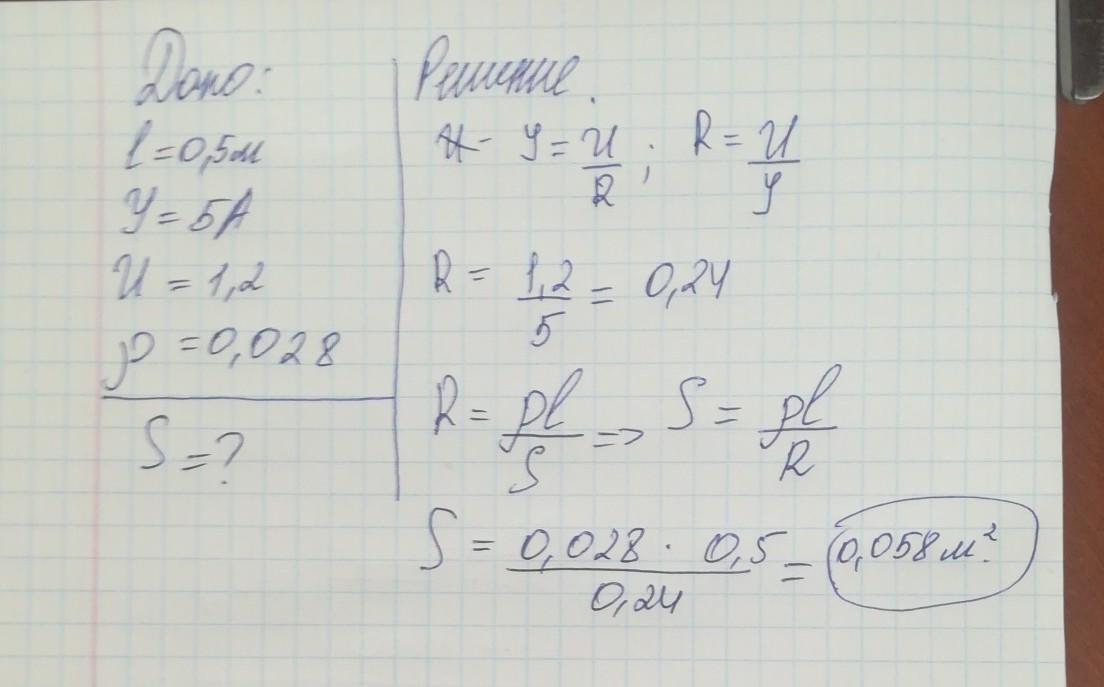 Дано:
l = 0,5м
У = 5А
U = 1,2
ρ = 0,028
S = ?
Решение.
У = U/R ; R = U/У
R = 1,2/5 = 0,24
R = ρl/S => S = ρl/R
S = 0,028 · 0,5/0,24 = 0,058м².